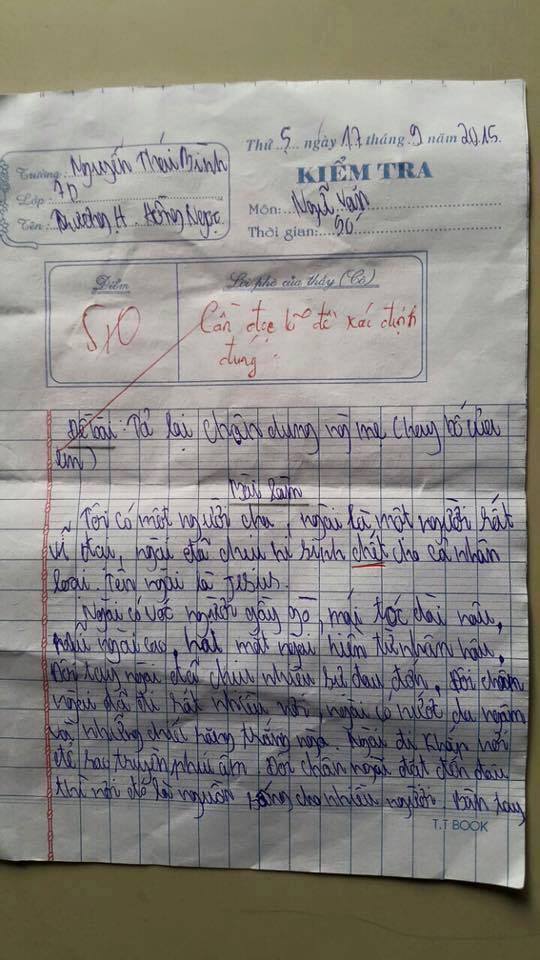 Thứ 5 ngày 17 tháng 9 năm 2015.
KIỂM TRA
Trường: Nguyễn Thái Bình
Lớp: 7D
Tên: Trương H. Hồng Ngọc.
Môn: Ngữ Văn
Thời gian:
Điểm
Lời phê của thầy (Cô)
5,0
Cần đọc kĩ đề xác định
đúng.
Đề bài: Tả lại chân dung ng mẹ (hay bố của
em)
Bài làm
Tôi có một người cha, ngài là một người rất
vĩ đại, ngài đã chịu hi sinh chết cho cả nhân
loại. Tên ngài là Jesus.
Ngài có vóc người gầy gò, mái tóc dài nâu,
ngài cao, mắt ngài hiền từ nhân hậu,
Đôi tay ngài đã chịu nhiều sự đau đớn, Đôi chân
ngài đã đi rất nhiều nơi, ngài có nướt da ngăm
và những chiếc răng trắng ngà. Ngài đi khắp nơi
để rao truyền phúc âm Đôi chân ngài đặt đến đâu
thì nơi đó là nguồn sống cho nhiều người. Bàn tay
T.T BOOK